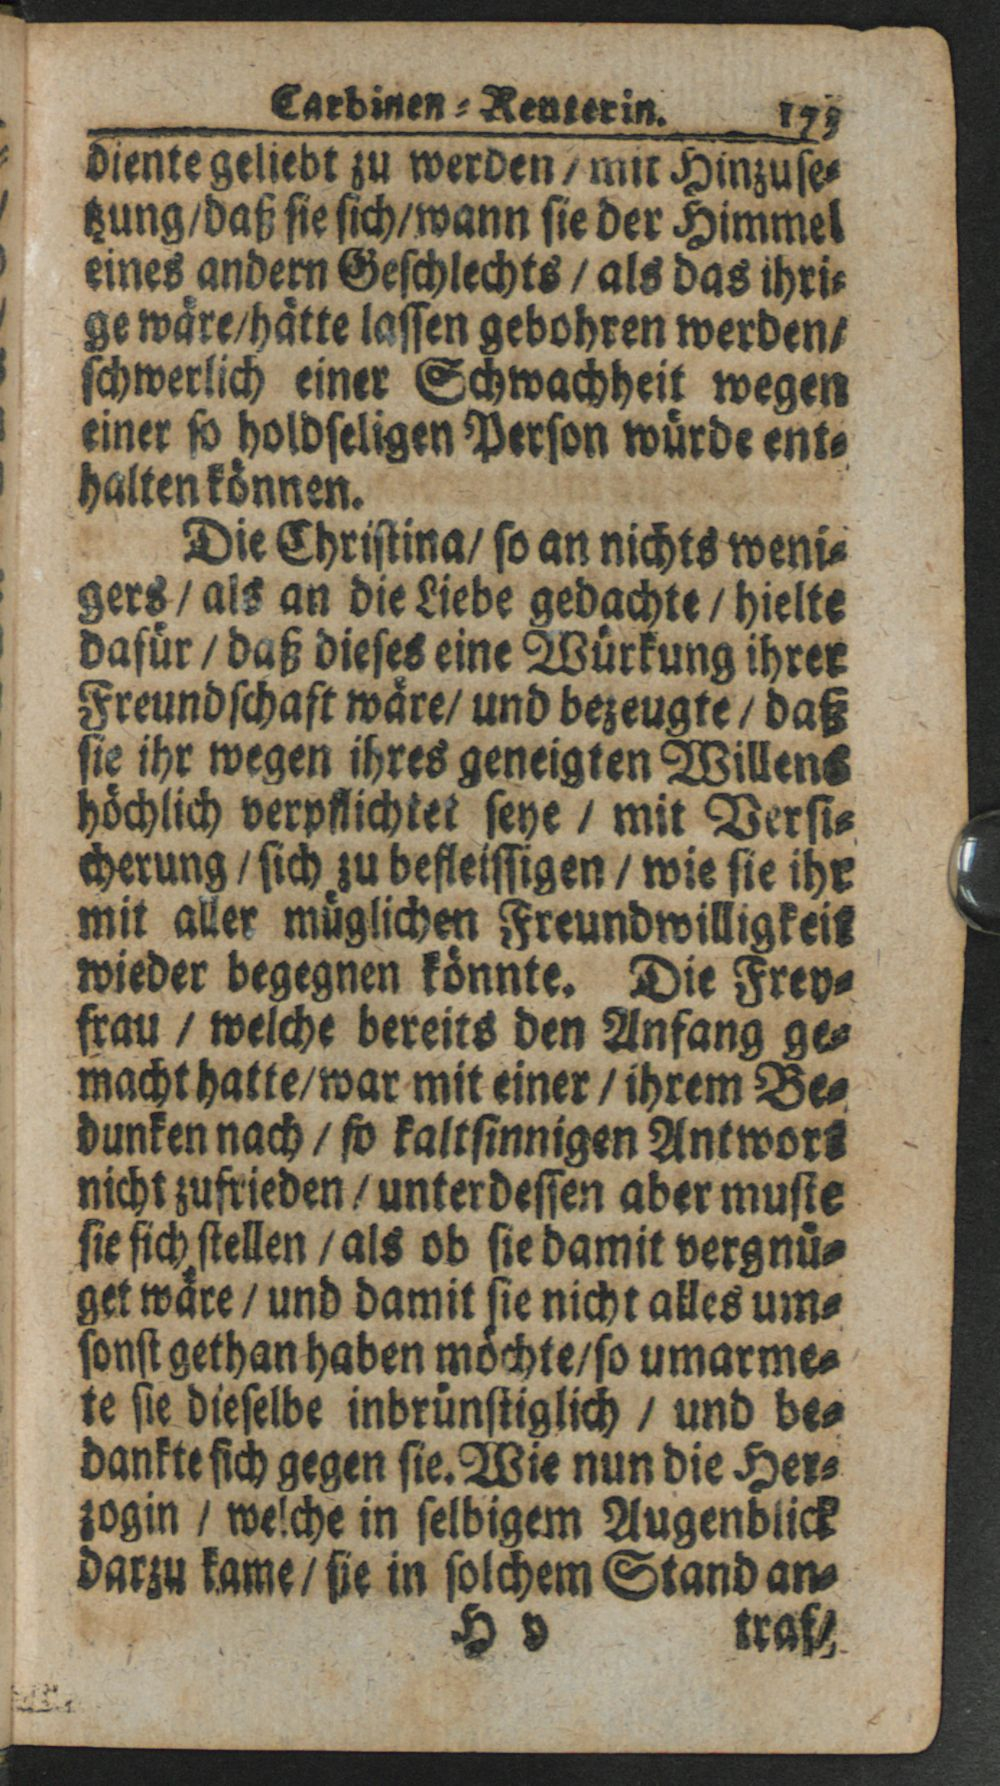 Carbinen-Reuterin. 179
diente geliebt zu werden / mit Hinzuse-
tzung/daß sie sich/wann sie der Himmel
eines andern Geschlechts / als das ihri-
ge wäre/hätte lassen gebohren werden/
schwerlich einer Schwachheit wegen
einer so holdseligen Person würde ent-
halten können.
Die Christina/ so an nichts weni-
gers / als an die Liebe gedachte / hielte
dafür / daß dieses eine Würkung ihrer
Freundschaft wäre/ und bezeugte / daß
sie ihr wegen ihres geneigten Willens
höchlich verpflichtet seye / mit Versi-
cherung / sich zu befleissigen / wie sie ihr
mit aller müglichen Freundwilligkeit
wieder begegnen könnte. Die Frey-
frau / welche bereits den Anfang ge-
macht hatte/war mit einer / ihrem Be-
dunken nach / so kaltsinnigen Antwort
nicht zufrieden / unterdessen aber muste
sie sich stellen / als ob sie damit vergnü-
get wäre / und damit sie nicht alles um-
sonst gethan haben möchte/so umarme-
te sie dieselbe inbrünstiglich / und be-
dankte sich gegen sie. Wie nun die Her-
zogin / welche in selbigem Augenblick
darzu kame / sie in solchem Stand an-
H v traf/